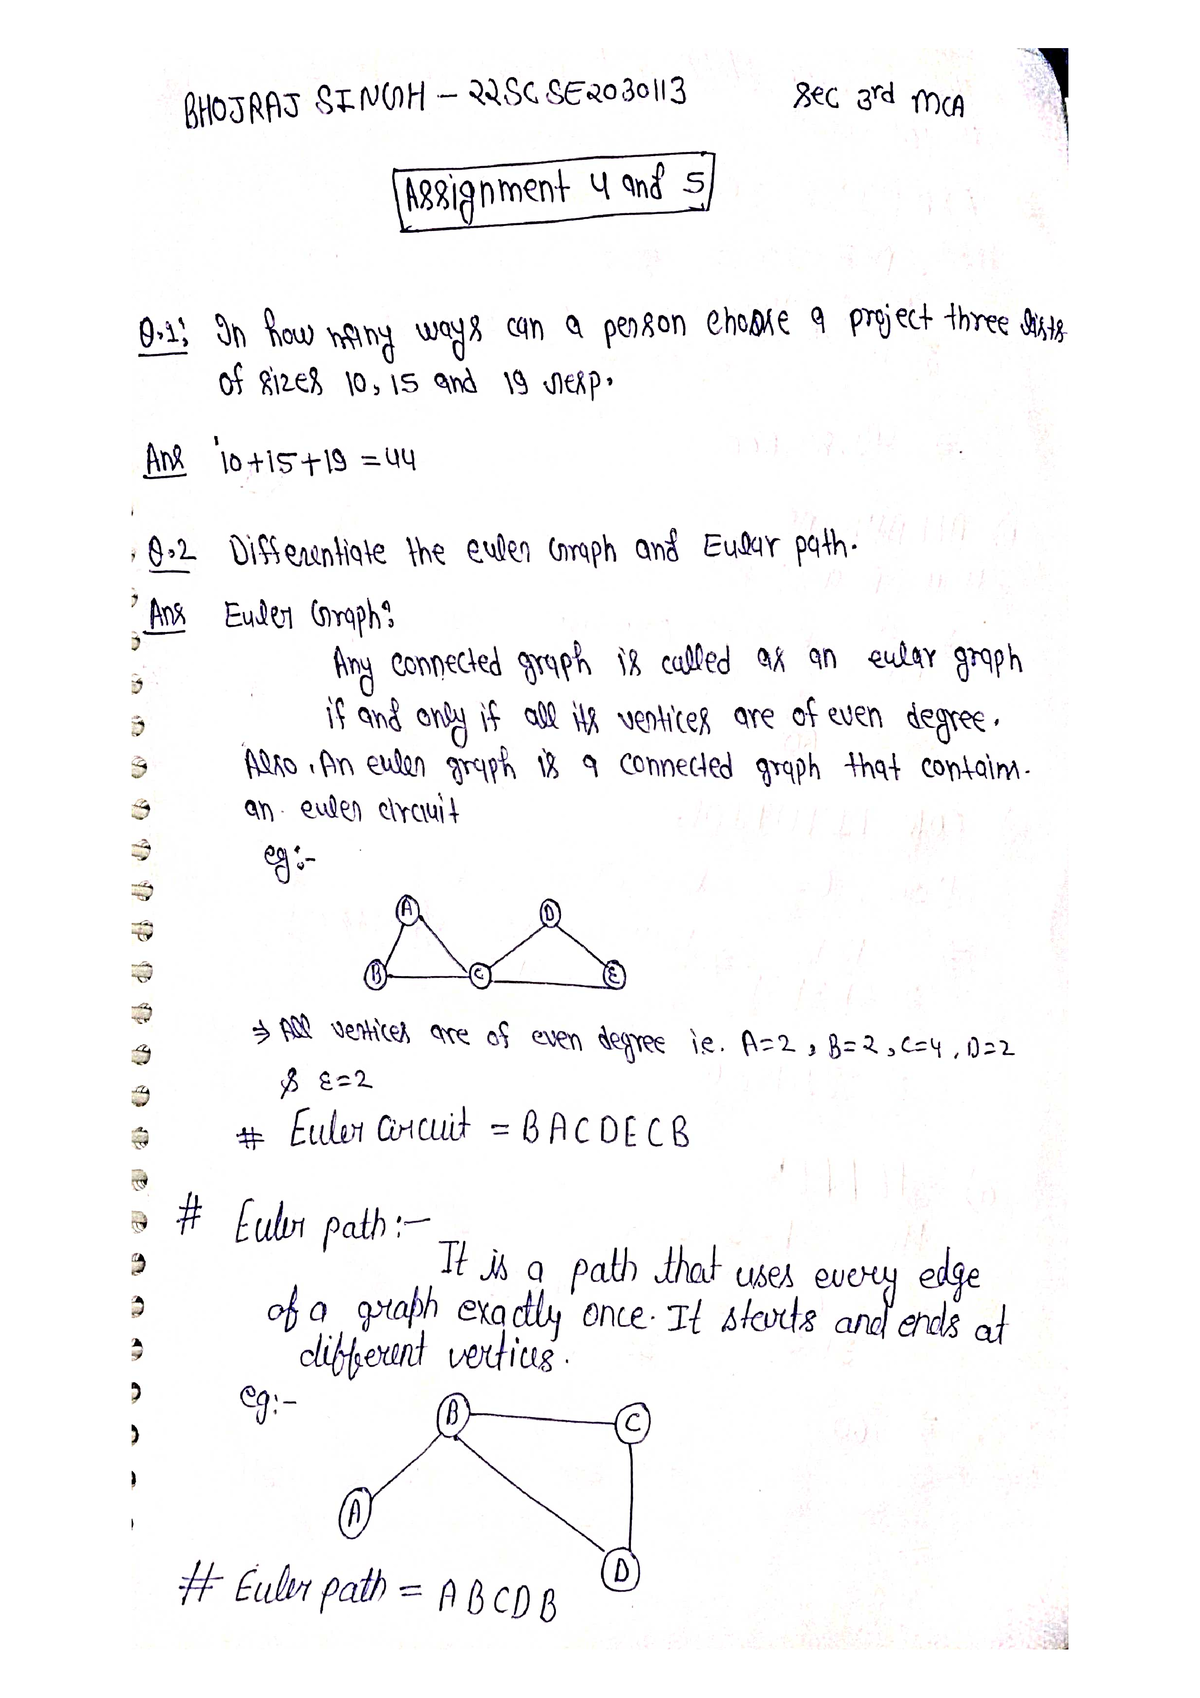 BHOJRAJ SINGH - 22SCSE2030113 Sec 3rd MCA
Assignment 4 and 5
Q.1; In how many ways can a person choose a project three lists
of sizes 10, 15 and 19 resp.
Ans 10+15+19 = 44
Q.2 Differentiate the euler Graph and Eular path.
Ans Euler Graph:
Any connected graph is called as an eular graph
if and only if all its vertices are of even degree.
Also, An euler graph is a connected graph that contain.
an euler circuit
eg:-
A D
B C E
⇒ All vertices are of even degree i.e. A=2, B=2, C=4, D=2
& E=2
# Euler Circuit = BACDECB
# Euler path:-
It is a path that uses every edge
of a graph exactly once. It starts and ends at
different vertices.
eg:-
B C
A
D
# Euler path = ABCDB